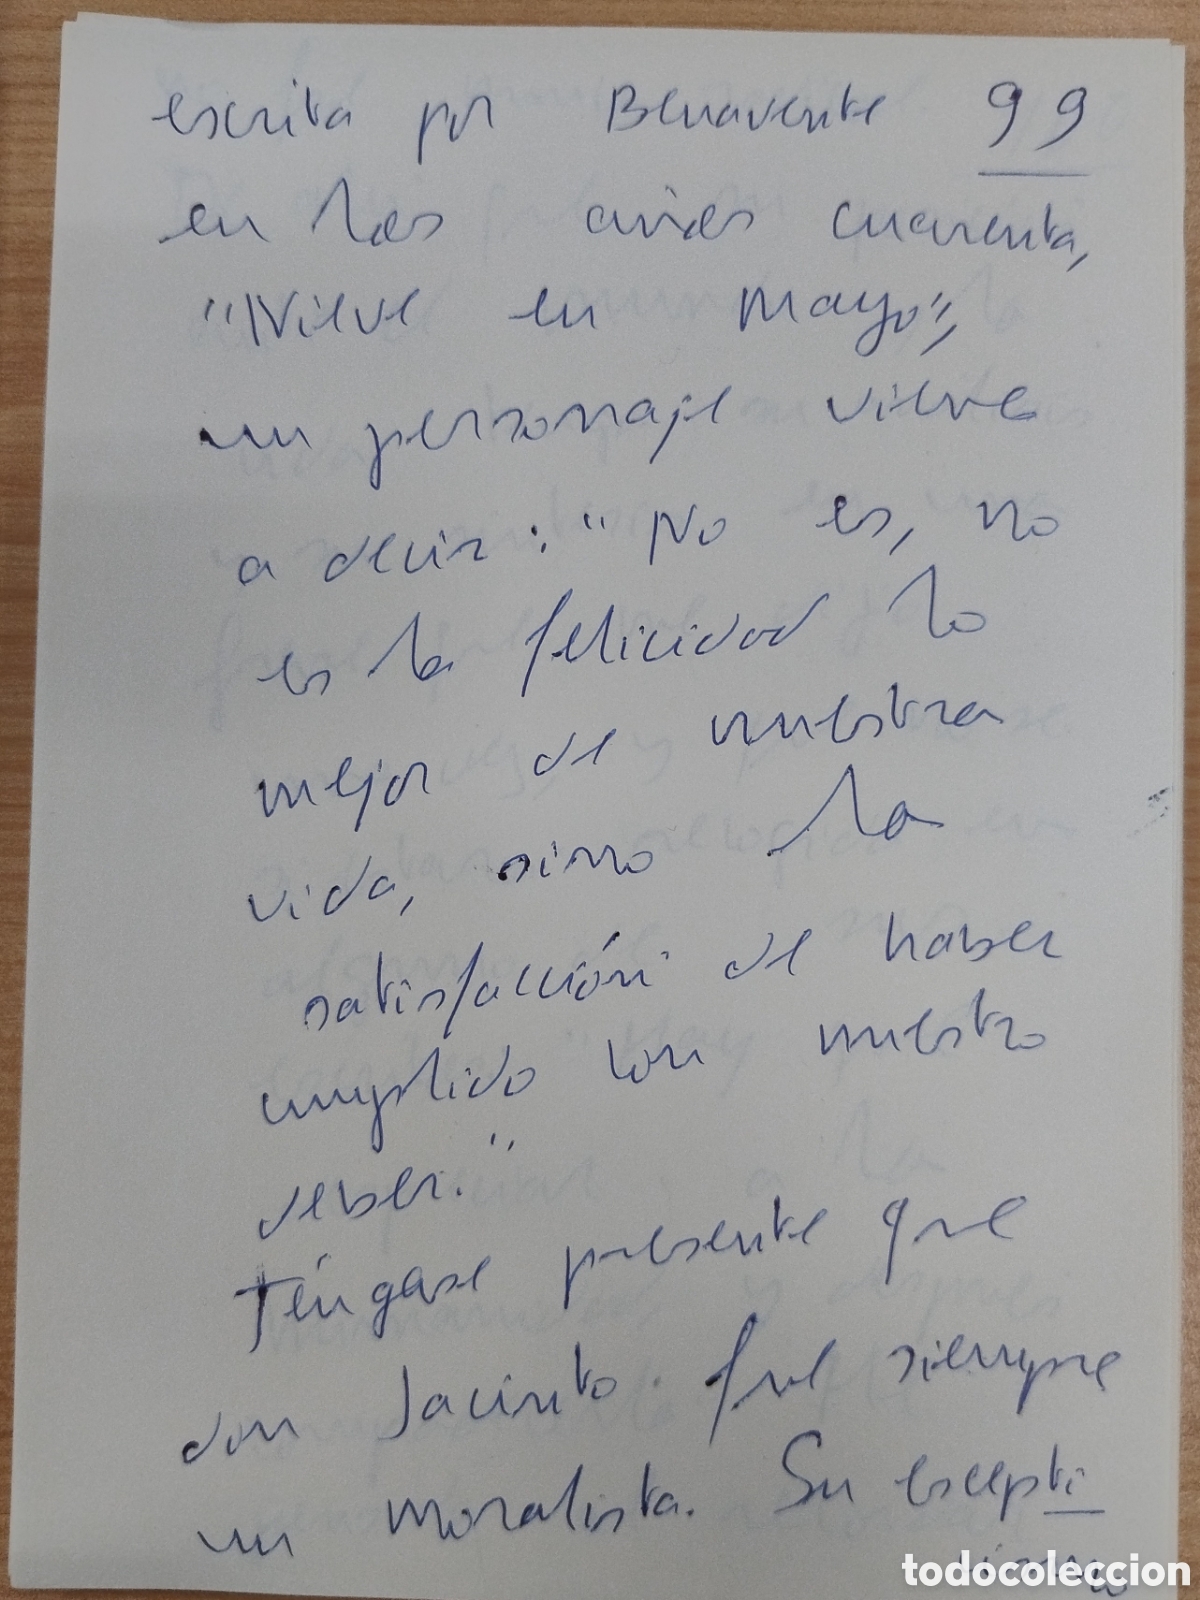 escrita por Benavente 99
en los años cuarenta,
"Nieve en mayo",
un personaje vieve
a decir: "No es, no
es la felicidad lo
mejor de nuestra
vida, sino la
satisfacción de haber
cumplido con nuestro
deber."
Téngase presente que
don Jacinto fue siempre
un moralista. Su escepti
cismo
todocoleccion